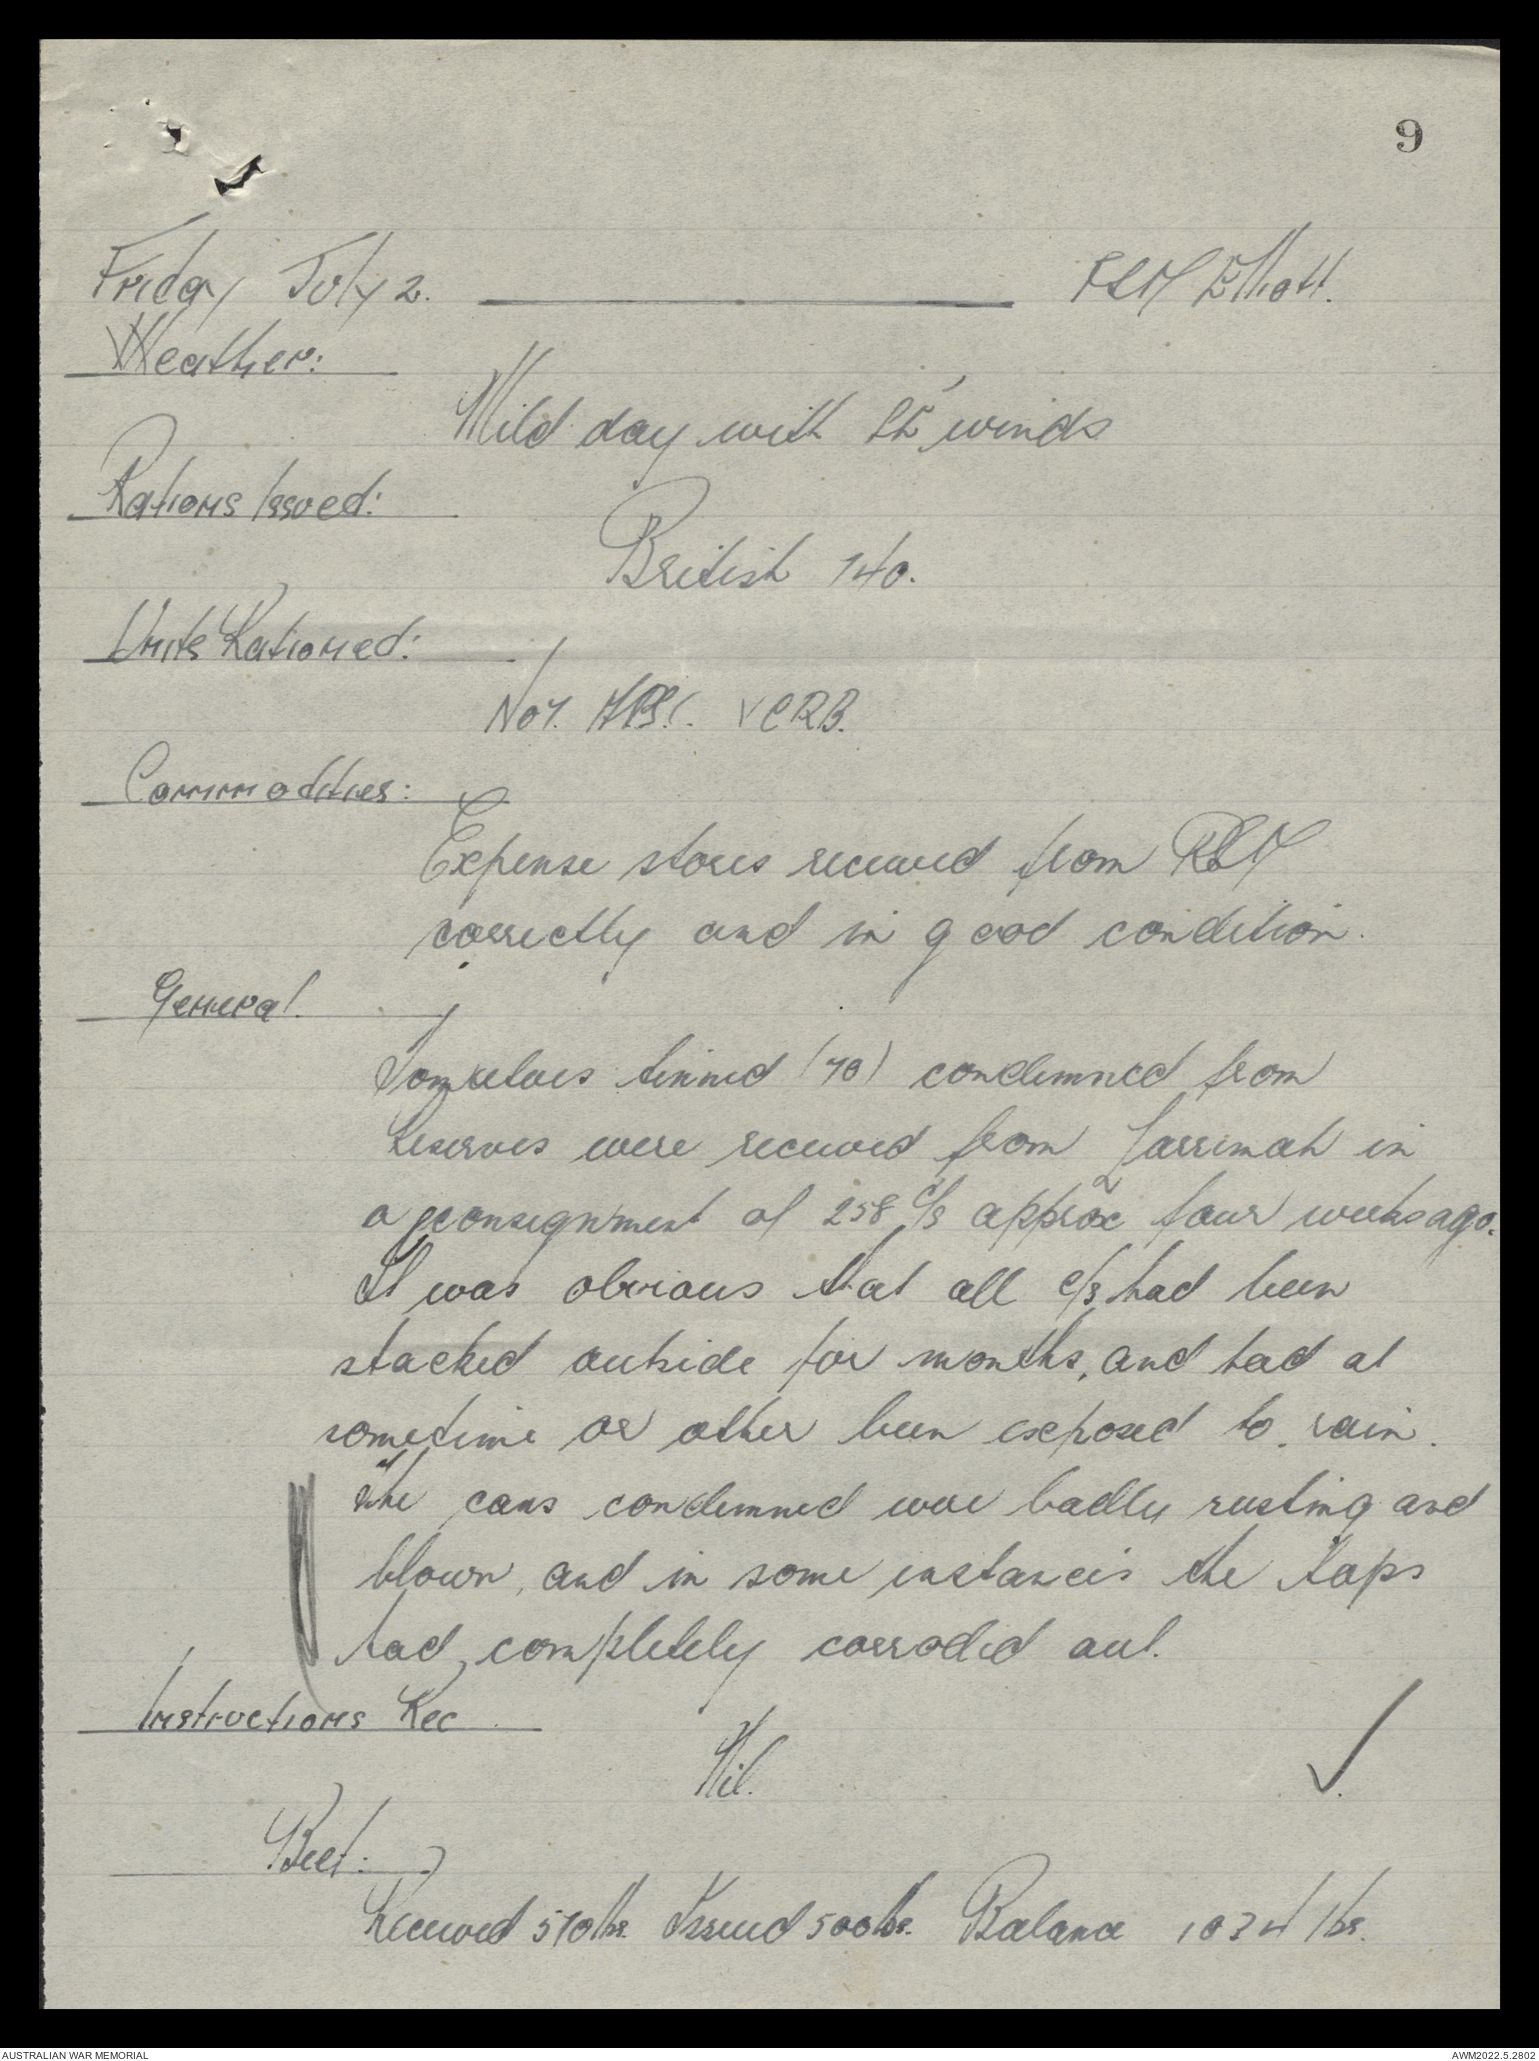 9
Friday July 2. Elliott.
Weather:
Mild day with SE winds
Rations Issued:
British 740.
Units Rationed:
No 7. VCRB.
Commodities:
Expense stores received from
correctly and in good condition.
General.
tinned (70) condemned from
Reserves were received from Larrimah in
a consignment of 258 c/s approx four weeks ago.
It was obvious that all c/s had been
stacked outside for months, and had at
sometime or other been exposed to rain.
The cans condemned were badly rusting and
blown, and in some instances the tops
had completely corroded out.
Instructions Rec
Nil.
Beef:
Received 570 lbs. Issued 500 lbs. Balance 1034 lbs.
AUSTRALIAN WAR MEMORIAL AWM2022.5.2802